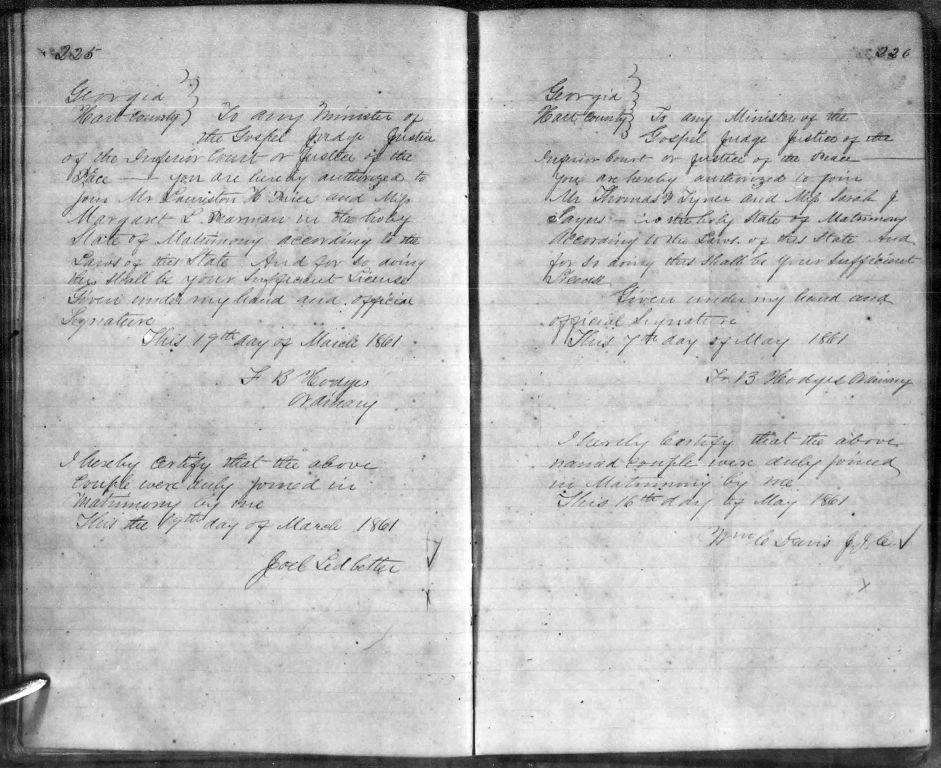 225
Georgia
Hart County } To any Minister of
the Gospel Judge Justice
of the Inferior Court or Justice of the
Peace — you are hereby authorized to
join Mr H and Miss
Margaret L in the holy
State of Matrimony according to the
Laws of this State And for so doing
this shall be your Sufficient License
Given under my hand and official
Signature
This 19th day of March 1861
F B Hodges
Ordinary
I hereby certify that the above
Couple were duly joined in
Matrimony by me
This the 19th day of March 1861
Joel Ledbetter
226
Georgia
Hart County } To any Minister of the
Gospel Judge Justice of the
Inferior Court or Justice of the Peace
You are hereby authorized to join
Mr Thomas Tyner and Miss Sarah J
Sayers — in the holy State of Matrimony
According to the Laws of this State And
for so doing this shall be your Sufficient
Given under my hand and
official Signature
This 7th day of May 1861
F. B. Hodges Ordinary
I hereby Certify that the above
named couple were duly joined
in Matrimony by me
This 16th day of May 1861
Wm C Davis J.I.C.